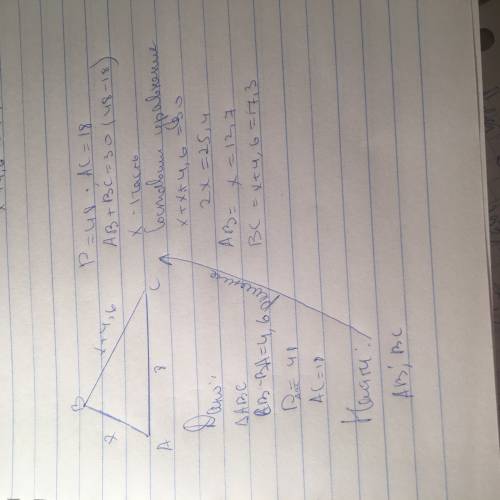 B
x
x+4,6
A
C
Дано:
ΔABC
BB-BA=4,6
P =48
AC=18
Решение
Найти:
AB, BC
P=48. AC=18
AB+BC=30 (48-18)
x - 1 часть
Составим уравнение
x+x+4,6=30
2x=25,4
AB= x=12,7
BC=x+4,6=17,3